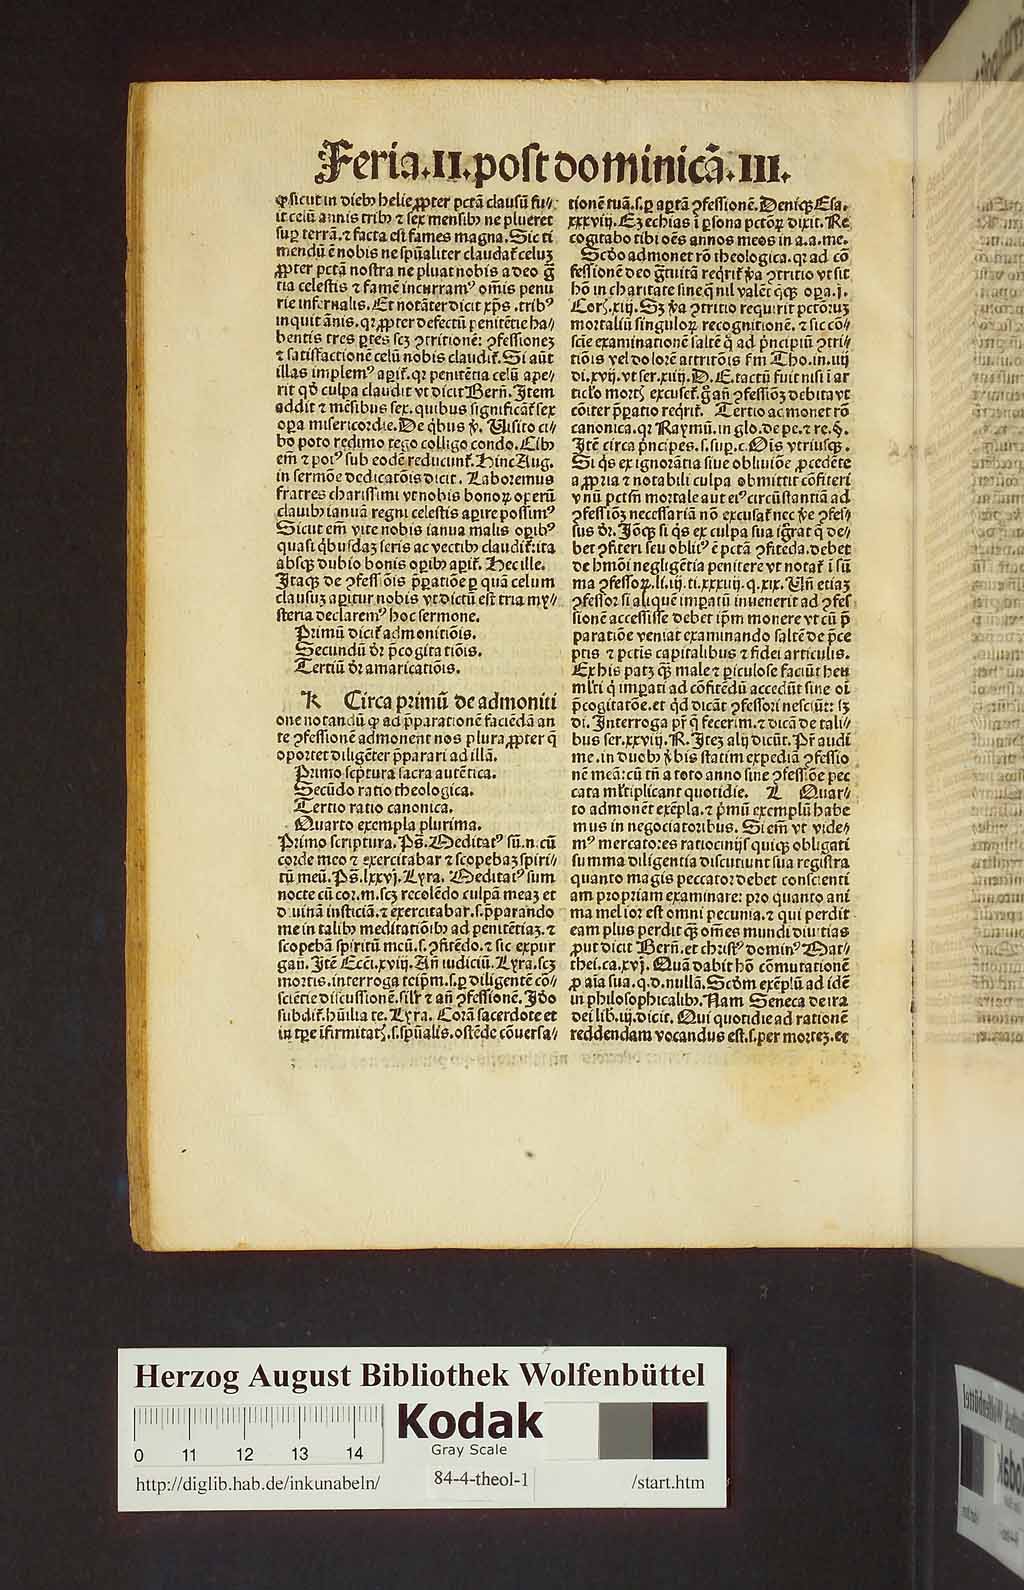 Feria.II.post dominicā.III.
ꝙ sicut in dieb⁹ helie ꝓpter pctā clausū fu⸗
it celū annis trib⁹ ⁊ sex mensib⁹ ne plueret
sup terrā.⁊ facta est fames magna. Sic ti
mendū ē nobis ne spūaliter claudat̄ celuꝫ
ꝓpter pctā nostra ne pluat nobis a deo grā
tia celestis ⁊ famē incurram⁹ om̄is penu
rie infernalis. Et notāter dicit xp̄s .trib⁹
inquit ānis. qꝛ ꝓpter defectū penitētie ha⸗
bentis tres ꝑtes scꝫ ↄtritionē: ↄfessioneꝫ
⁊ satisfactionē celū nobis claudit̄. Si aūt
illas implem⁹ aꝑit̄. qꝛ penitētia celū aꝑe⸗
rit qd̄ culpa claudit vt dicit Bern̄. Item
addit ⁊ mēsibus sex. quibus significāt̄ sex
oꝑa misericordie. De qͥbus ꝟ. Uisito ci⸗
bo poto redimo tego colligo condo. Cib⁹
em̄ ⁊ pot⁹ sub eodē reducunt̄. Hinc Aug.
in sermōe dedicatōis dicit. Laboremus
fratres charissimi vt nobis bonoꝝ oꝑerū
clauib⁹ ianuā regni celestis aꝑire possim⁹
Sicut em̄ vite nobis ianua malis oꝑib⁹
quasi qͥbusdaꝫ seris ac vectib⁹ claudit̄: ita
absqꝫ dubio bonis oꝑib⁹ aꝑit̄. Hec ille.
Itaqꝫ de ↄfessiōis p̄ꝑatiōe ꝑ quā celum
clausuꝫ aꝑitur nobis vt dictū est tria my⸗
steria declarem⁹ hoc sermone.
Primū dicit̄ admonitiōis.
Secundū dr̄ p̄cogitatiōis.
Tertiū dr̄ amaricatiōis.
K Circa primū de admoniti
one notandū ꝙ ad p̄parationē faciēdā an
te ↄfessionē admonent nos plura ꝓpter q̄
oportet diligēter p̄parari ad illā.
Primo scp̄tura sacra autētica.
Secūdo ratio theologica.
Tertio ratio canonica.
Quarto exempla plurima.
Primo scriptura. Ps̄. Meditat⁹ sū.n.cū
corde meo ⁊ exercitabar ⁊ scopebaꝫ spiri⸗
tū meū. Ps̄.lxxvj. Lyra. Meditat⁹ sum
nocte cū cor.m.scꝫ recolēdo culpā meaꝫ et
diuinā iusticiā.⁊ exercitabar.s.p̄parando
me in talib⁹ meditatiōib⁹ ad penitētiaꝫ.⁊
scopebā spiritū meū.s.ↄfitēdo.⁊ sic expur
gan̄. Itē Ecc̄i.xviij. An̄ iudiciū. Lyra.scꝫ
mortis.interroga teip̄m.s.ꝑ diligentē cō⸗
sciētie discussionē.silr̄ ⁊ an̄ ↄfessionē. Ido
subdit̄.hūilia te. Lyra. Corā sacerdote et
in tꝑe īfirmitatꝭ.s.spūalis.ostēde cōuersa⸗
tionē tuā.s.ꝑ aꝑtā ↄfessionē. Deniqꝫ Esa.
xxxviij. Ezechias ī ꝑsona pctōꝝ dixit. Re
cogitabo tibi oēs annos meos in a.a.me.
Scd̄o admonet rō theologica. qꝛ ad cō
fessionē deo gratuitā reqͥrit̄ ꝟa ↄtritio vt sit
hō in charitate sine q̄ nil valēt q̄cūqꝫ oꝑa.j.
Corꝭ.xiij. Sꝫ ꝟa ↄtritio requirit pctōruꝫ
mortaliū singuloꝝ recognitionē.⁊ sic cō⸗
sciē examinationē saltē q̄ ad p̄ncipiū ↄtri⸗
tiōis vel dolorē attritōis ẜm Tho.in.iiij
di.xvij.vt ser.xiiij. D. E. tactū fuit nisi ī ar
ticlo mortꝭ excuset̄.gͦ an̄ ↄfessiōꝫ debita vt
cōiter p̄patio reqͥrit̄. Tertio ac monet rō
canonica. qꝛ Raymū.in glo.de pe.⁊ re.§.
Itē circa p̄ncipes.s.sup.c. Oīs vtriusqꝫ.
Si qͥs ex ignorātia siue obliuiōe ꝓcedēte
a ꝓpria ⁊ notabili culpa obmittit cōfiteri
vnū pctm̄ mortale aut ei⁹ circūstantiā ad
ↄfessiōꝫ necessariā nō excusat̄ nec ꝟe ↄfes⸗
sus dr̄. Iōqꝫ si qͥs ex culpa sua igrat q̄ de⸗
bet ↄfiteri seu oblit⁹ ē pctā ↄfitēda.debet
de hmōi negligētia penitere vt notat̄ ī sū
ma ↄfessoꝝ.li.iij.ti.xxxiiij.q.xix. Un̄ etiaꝫ
ↄfessor si aliquē imꝑatū inuenerit ad ↄfes
sionē accessisse debet ip̄m monere vt cū p̄
paratiōe veniat examinando saltē de p̄ce
ptis ⁊ pctis capitalibus ⁊ fidei articulis.
Ex his patꝫ qꝫ male ⁊ ꝑiculose faciūt heu
ml̄ti qͥ imꝑati ad cōfitēdū accedūt sine oī
p̄cogitatōe.et qͥd dicāt ↄfessori nesciūt: sꝫ
di. Interroga pr̄ qͥ fecerim.⁊ dicā de tali⸗
bus ser.xxviij. R. Iteꝫ alij dicūt. Pr̄ audi
me.in duob⁹ ꝟbis statim expediā ↄfessio
nē meā: cū tn̄ a toto anno sine ↄfessiōe pec
cata ml̄tiplicant quotidie. L Quar⸗
to admonēt exēpla.⁊ pͥmū exemplū habe
mus in negociatoribus. Si em̄ vt vide⸗
m⁹ mercatores ratiocinijs quicqꝫ obligati
summa diligentia discutiunt sua registra
quanto magis peccator debet conscienti
am propriam examinare: pro quanto ani
ma melior est omni pecunia.⁊ qui perdit
eam plus perdit qꝫ om̄es mundi diuitias
ꝓut dicit Bern̄. et christ⁹ domin⁹ Mat⸗
thei.ca.xvj. Quā dabit hō cōmutationē
ꝓ aīa sua.q.d.nullā. Scdm exēplū ad idē
in philosophicalib⁹. Nam Seneca de ira
dei lib.iij.dicit. Qui quotidie ad rationē
reddendam vocandus est.s.per morteꝫ.et
Herzog August Bibliothek Wolfenbüttel
Kodak
Gray Scale
0 11 12 13 14
http://diglib.hab.de/inkunabeln/ 84-4-theol-1 /start.htm